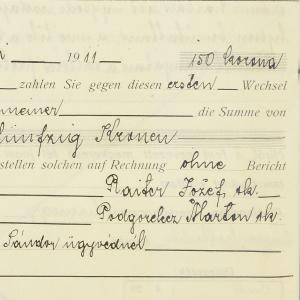 1911 150 korona
zahlen Sie gegen diesen ersten Wechsel
die Summe von
fünfzig Kronen
stellen solchen auf Rechnung ohne Bericht
Raiter József sk.
Podgorelecz Márton sk.
Sándor ügyvédnél